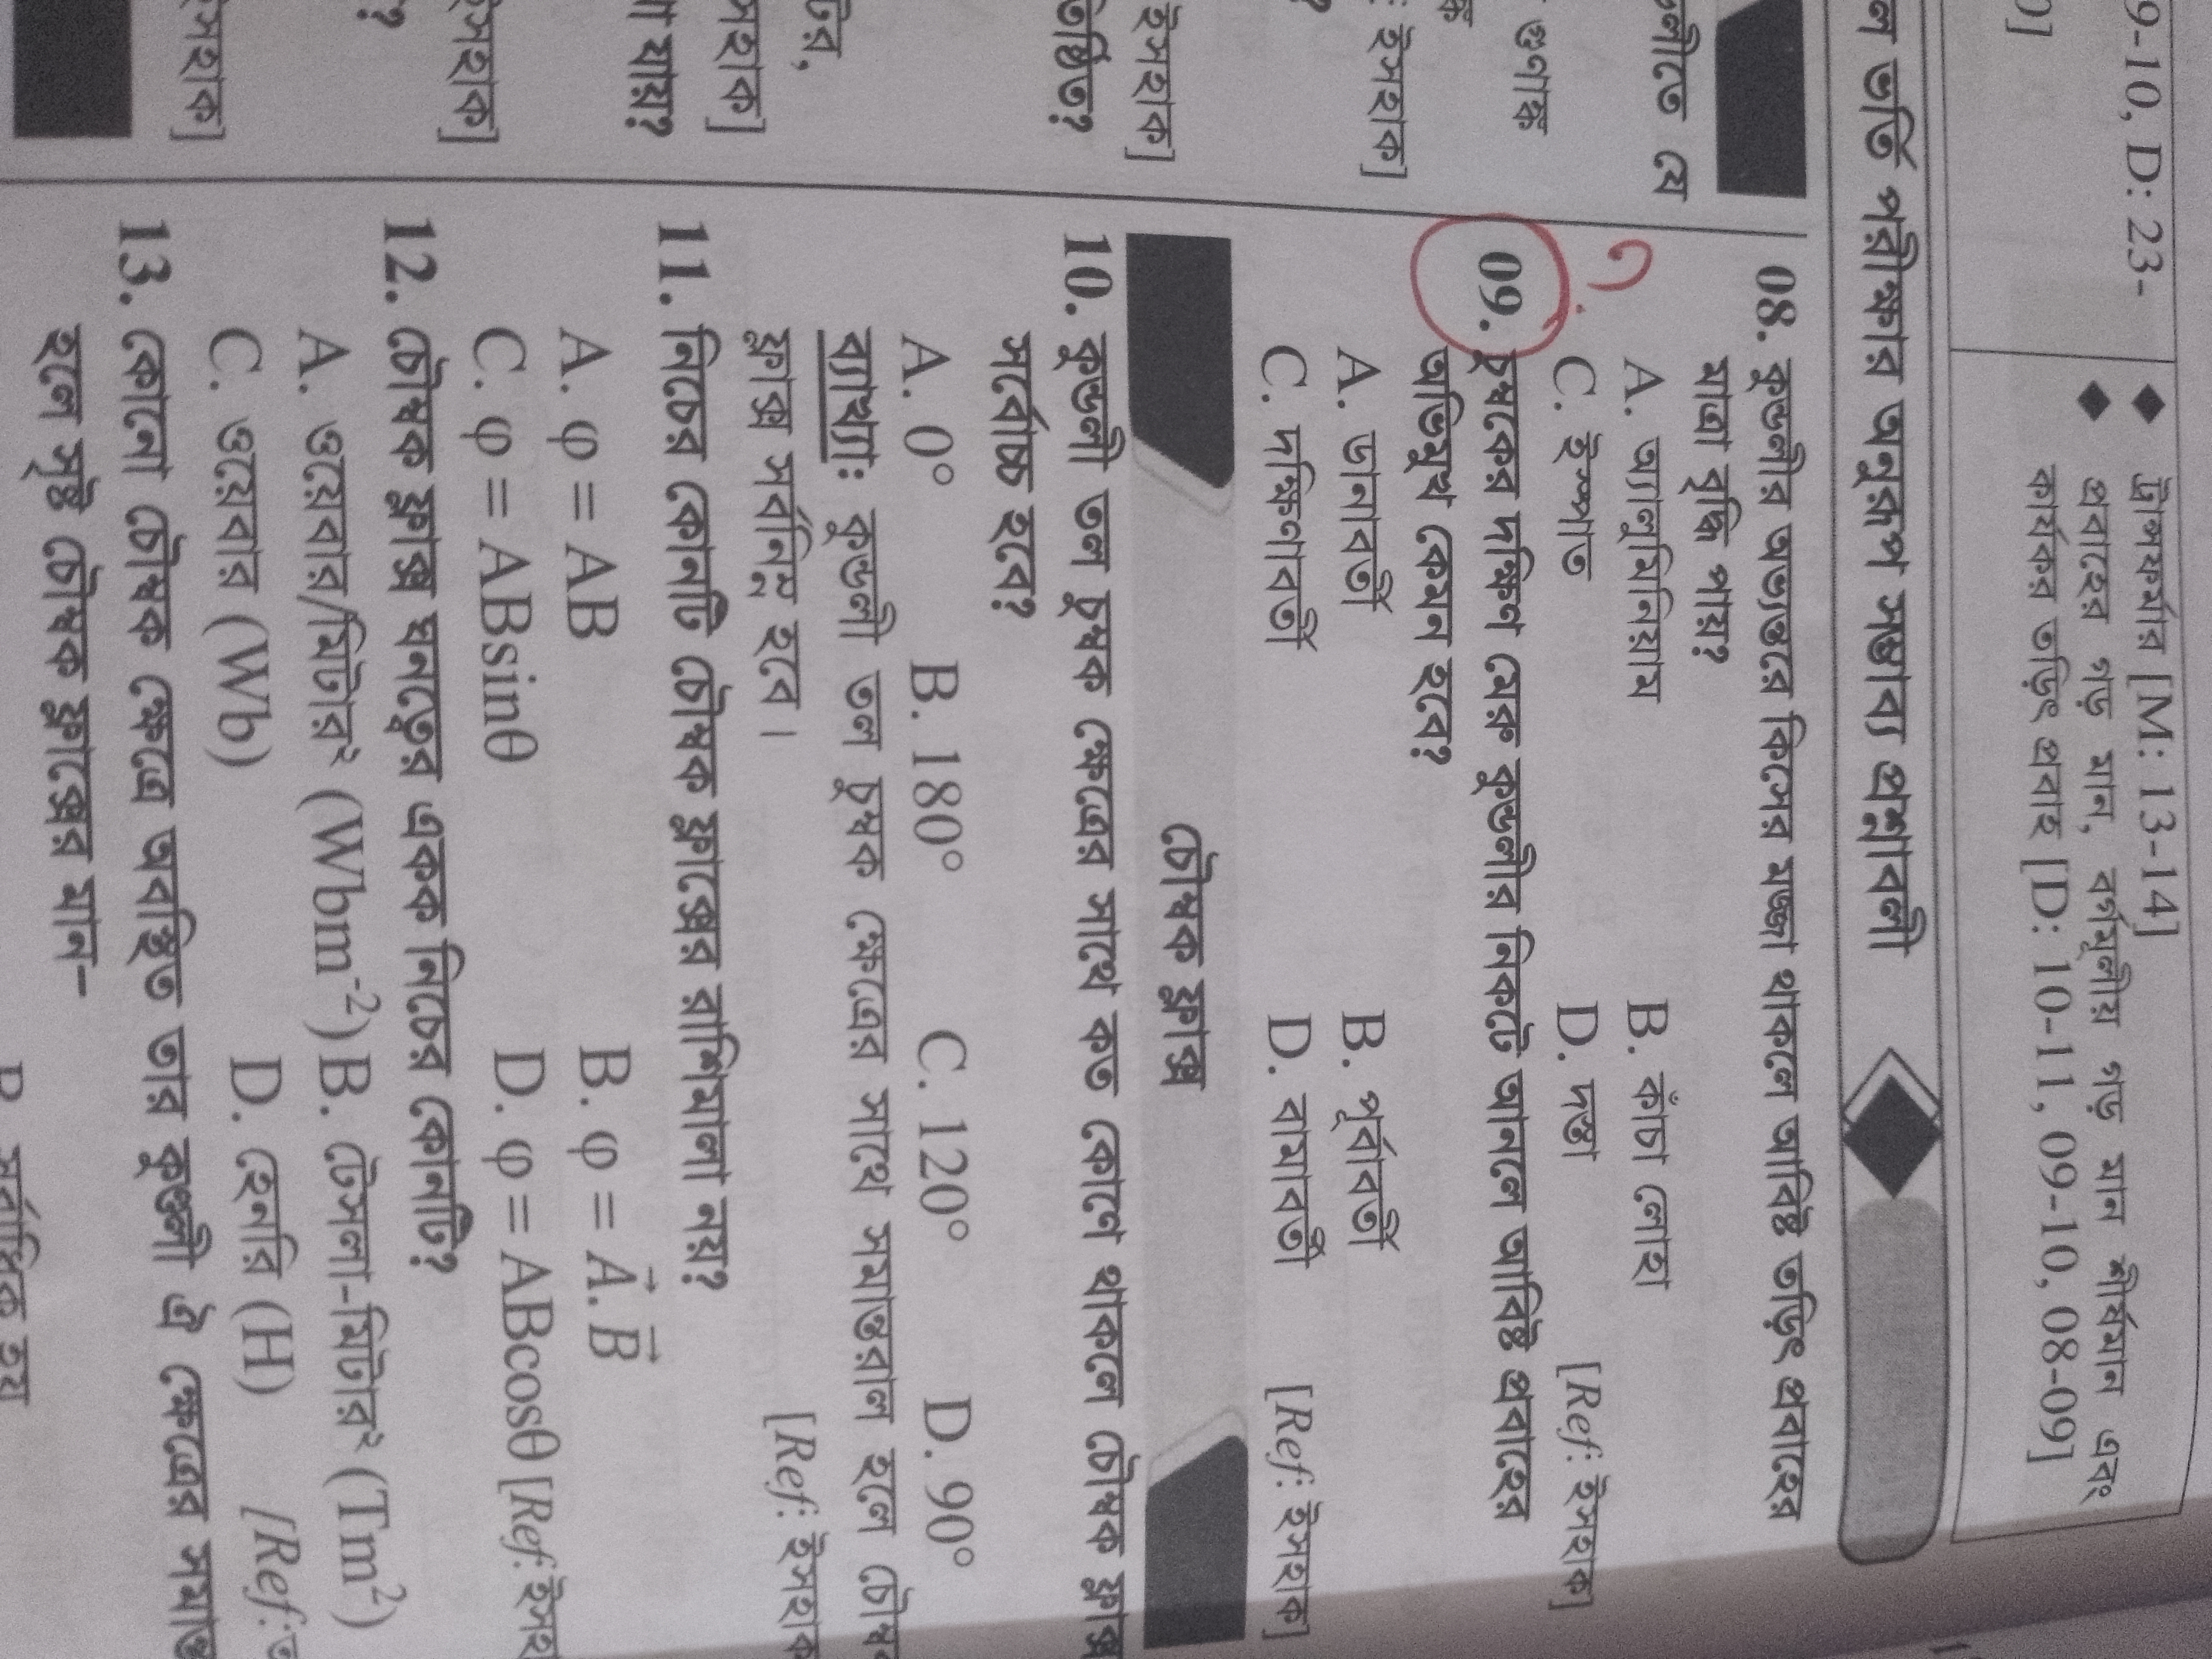 9-10, D: 23-
0]
◆ ট্রান্সফর্মার [M: 13-14]
◆ প্রবাহের গড় মান, বর্গমূলীয় গড় মান শীর্ষমান এবং
কার্যকর তড়িৎ প্রবাহ [D: 10-11, 09-10, 08-09]
ল ভর্তি পরীক্ষার অনুরূপ সম্ভাব্য প্রশ্নাবলী
ণ্ডলীতে যে
গুণাঙ্ক
ইসহাক]
ইসহাক]
তিষ্ঠিত?
টর,
সহাক]
যায়?
ইসহাক]
?
ইসহাক]
08. কুণ্ডলীর অভ্যন্তরে কিসের মজ্জা থাকলে আবিষ্ট তড়িৎ প্রবাহের
মাত্রা বৃদ্ধি পায়?
A. অ্যালুমিনিয়াম B. কাঁচা লোহা
C. ইস্পাত D. দস্তা [Ref: ইসহাক]
09. চুম্বকের দক্ষিণ মেরু কুণ্ডলীর নিকটে আনলে আবিষ্ট প্রবাহের
অভিমুখ কেমন হবে?
A. ডানাবর্তী B. পূর্বাবর্তী
C. দক্ষিণাবর্তী D. বামাবর্তী [Ref: ইসহাক]
চৌম্বক ফ্লাক্স
10. কুণ্ডলী তল চুম্বক ক্ষেত্রের সাথে কত কোণে থাকলে চৌম্বক ফ্লাক্স
সর্বোচ্চ হবে?
A. 0° B. 180° C. 120° D. 90°
ব্যাখ্যাঃ কুণ্ডলী তল চুম্বক ক্ষেত্রের সাথে সমান্তরাল হলে চৌম্ব
ফ্লাক্স সর্বনিম্ন হবে। [Ref: ইসহাক
11. নিচের কোনটি চৌম্বক ফ্লাক্সের রাশিমালা নয়?
A. φ = AB B. φ = A⃗.B⃗
C. φ = ABsinθ D. φ = ABcosθ [Ref: ইসহ
12. চৌম্বক ফ্লাক্স ঘনত্বের একক নিচের কোনটি?
A. ওয়েবার/মিটার² (Wbm⁻²) B. টেসলা-মিটার² (Tm²)
C. ওয়েবার (Wb) D. হেনরি (H) [Ref: ত
13. কোনো চৌম্বক ক্ষেত্রে অবস্থিত তার কুণ্ডলী ঐ ক্ষেত্রের সমান্ত
হলে সৃষ্ট চৌম্বক ফ্লাক্সের মান-
B. সর্বাধিক হয়